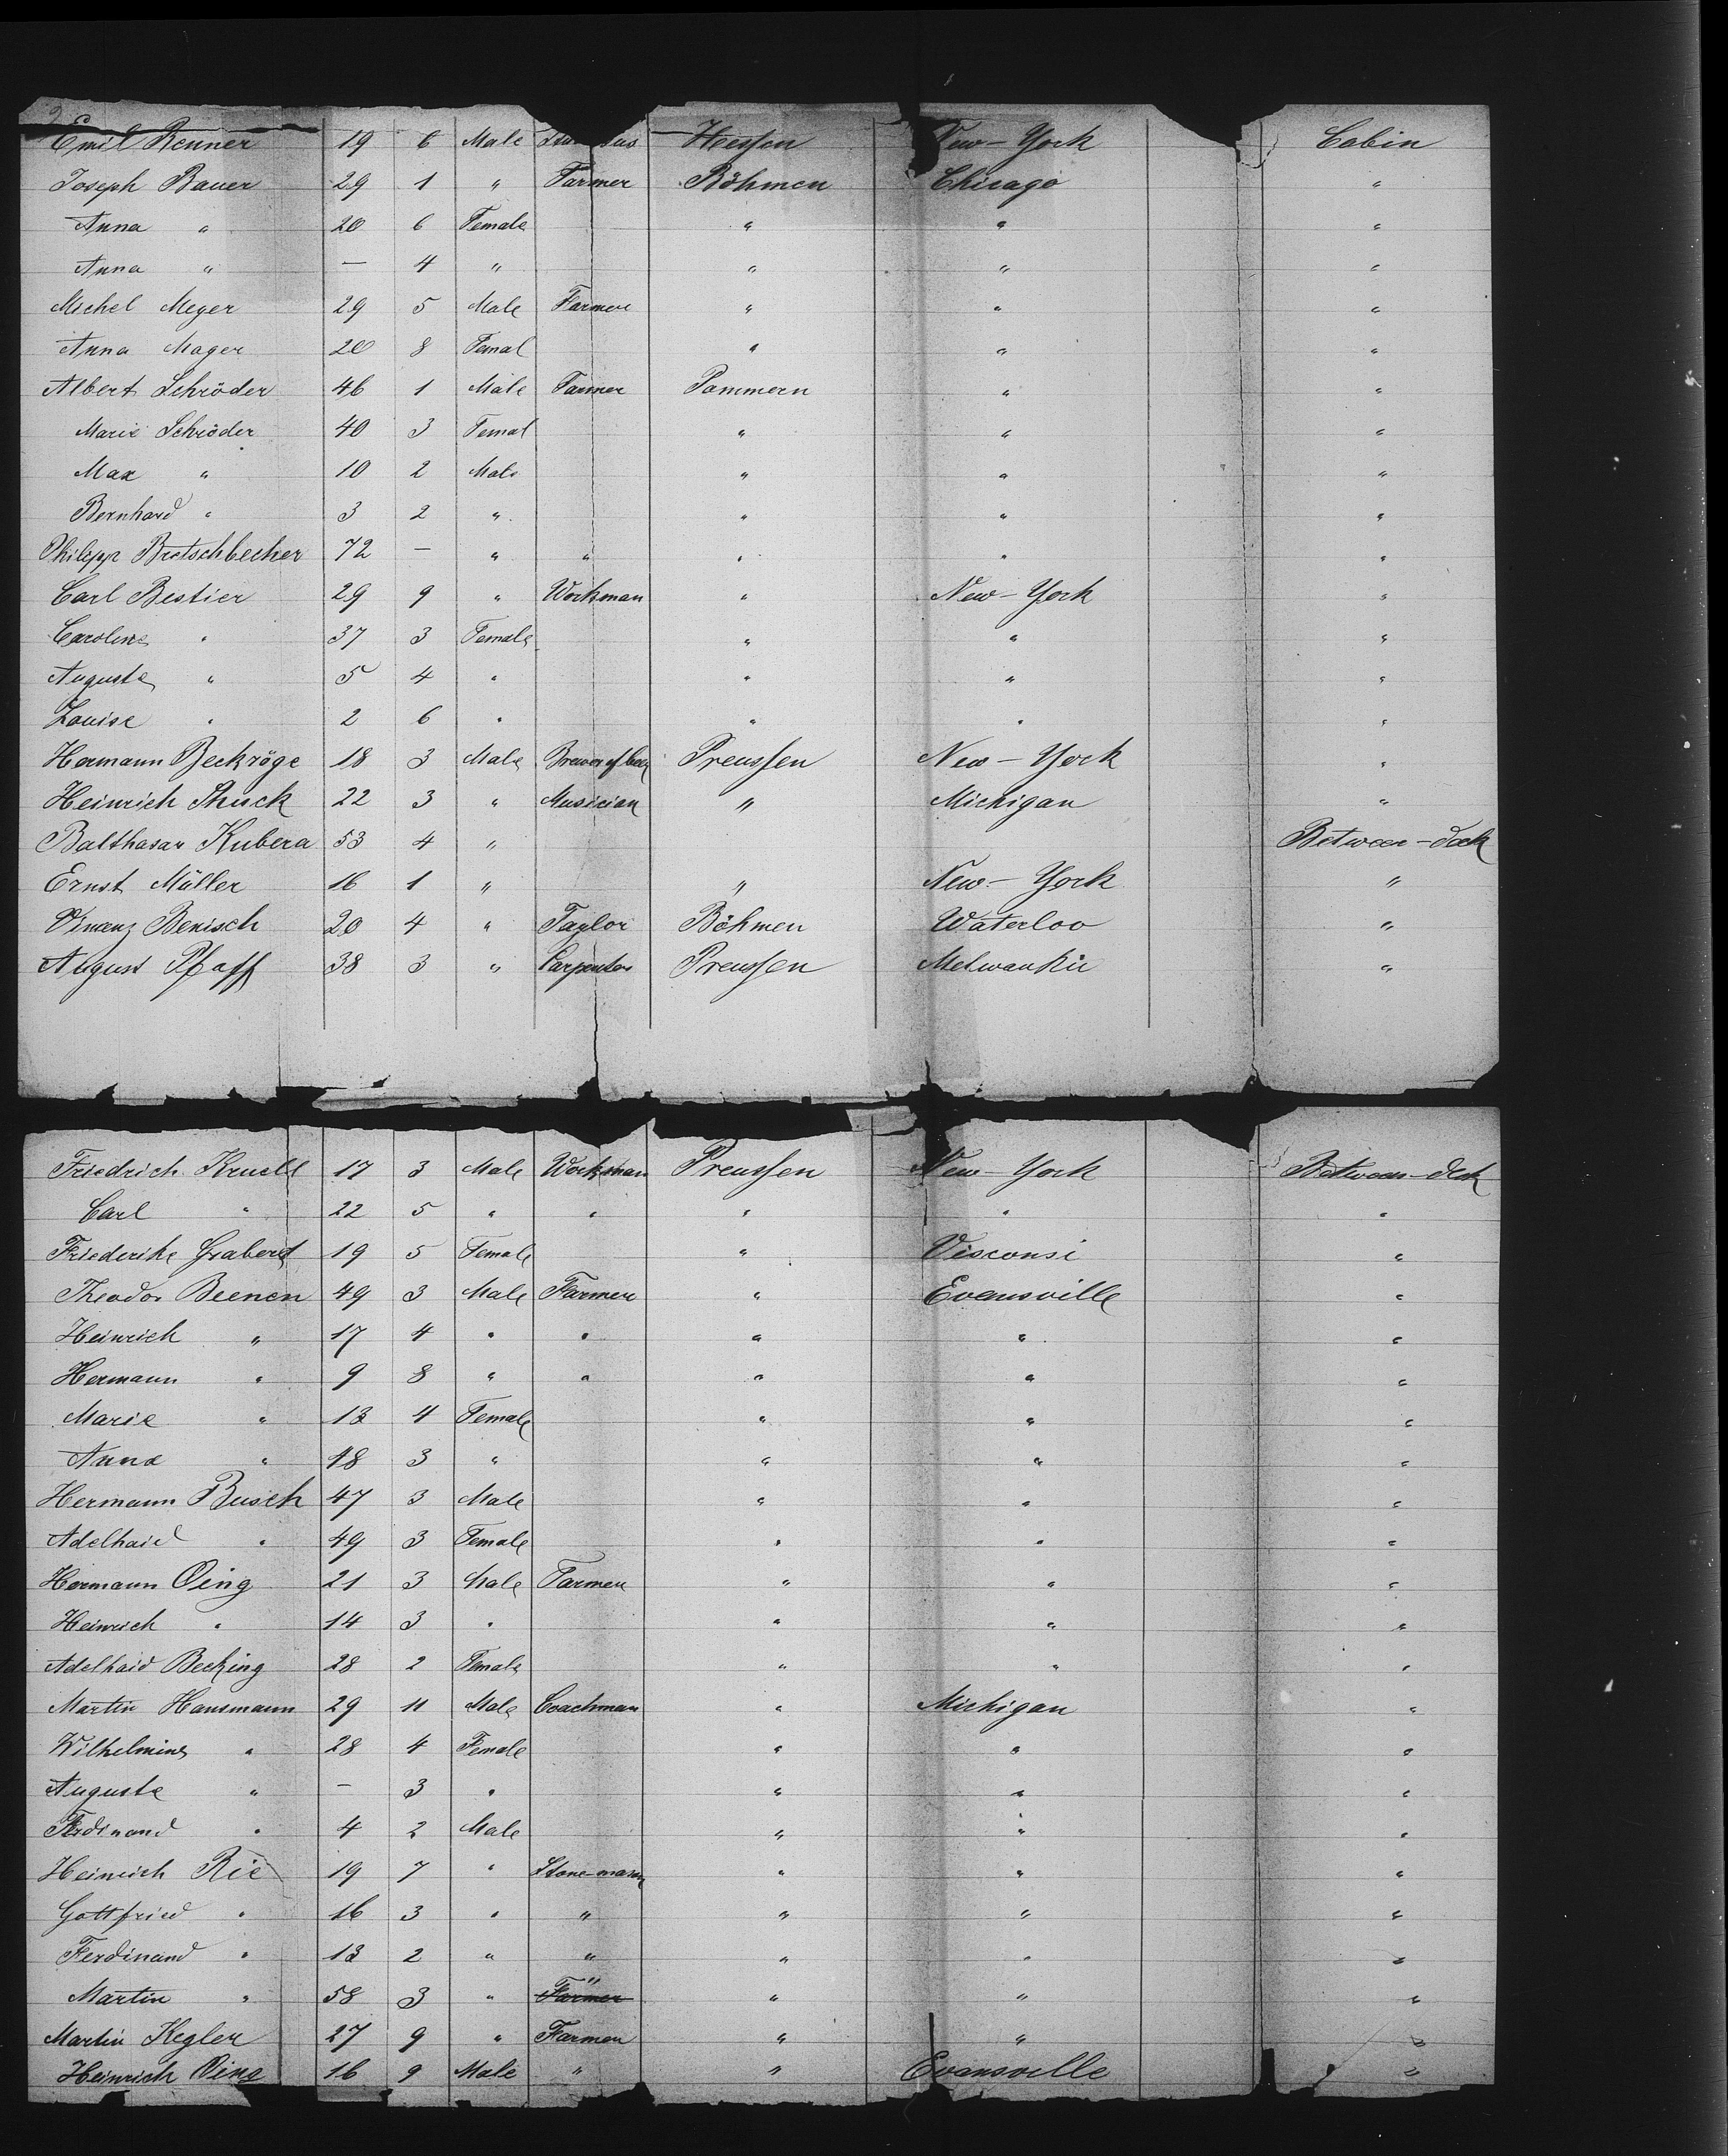 Emil Renner 19 6 Male Hessen New-York Cabin
Joseph Bauer 29 1 " Farmer Böhmen Chicago "
Anna " 20 6 Female " " "
Anna " — 4 " " " "
Michel Meyer 29 5 Male Farmer " " "
Anna Mayer 20 8 Femal " " "
Albert Schröder 46 1 Male Farmer Pommern " "
Marie Schröder 40 3 Femal " " "
Max " 10 2 Male " " "
Bernhard " 3 2 " " " "
Philipp Bretschbecher 72 — " " " " "
Carl Bestier 29 9 " Workman " New-York "
Caroline " 37 3 Female " " "
Auguste " 5 4 " " " "
Louise " 2 6 " " " "
Hermann Beckröge 18 3 Male Brewer of beer Preussen New-York "
Heinrich Shuck 22 3 " Musician " Michigan "
Balthasar Kubera 53 4 " Between-deck
Ernst Müller 16 1 " " New-York "
Benisch 20 4 " Taylor Böhmen Waterloo "
August Pfaff 38 3 " Carpenter Preussen Melwaukie "
Friedrich Kruell 17 3 Male Workman Preussen New-York Between-deck
Carl " 22 5 " " " " "
Friederike Grabert 19 5 Female " Visconsi "
Theodor Beenen 49 3 Male Farmer " Evansville "
Heinrich " 17 4 " " " " "
Hermann " 9 8 " " " " "
Marie " 13 4 Female " " "
Anna " 18 3 " " " "
Hermann Busch 47 3 Male " " "
Adelhaid " 49 3 Female " " "
Hermann Oing 21 3 Male Farmer " " "
Heinrich " 14 3 " " " "
Adelhaid Becking 28 2 Female " " "
Martin Hansmann 29 11 Male Coachman " Michigan "
Wilhelmine " 28 4 Female " " "
Auguste " — 3 " " " "
Ferdinand " 4 2 Male " " "
Heinrich Rie 19 7 " Stone-mason " " "
Gottfried " 16 3 " " " " "
Ferdinand " 13 2 " " " " "
Martin " 58 3 " Farmer " " " "
Martin Kegler 27 9 " Farmer " " "
Heinrich Oing 16 9 Male " " Evansville "